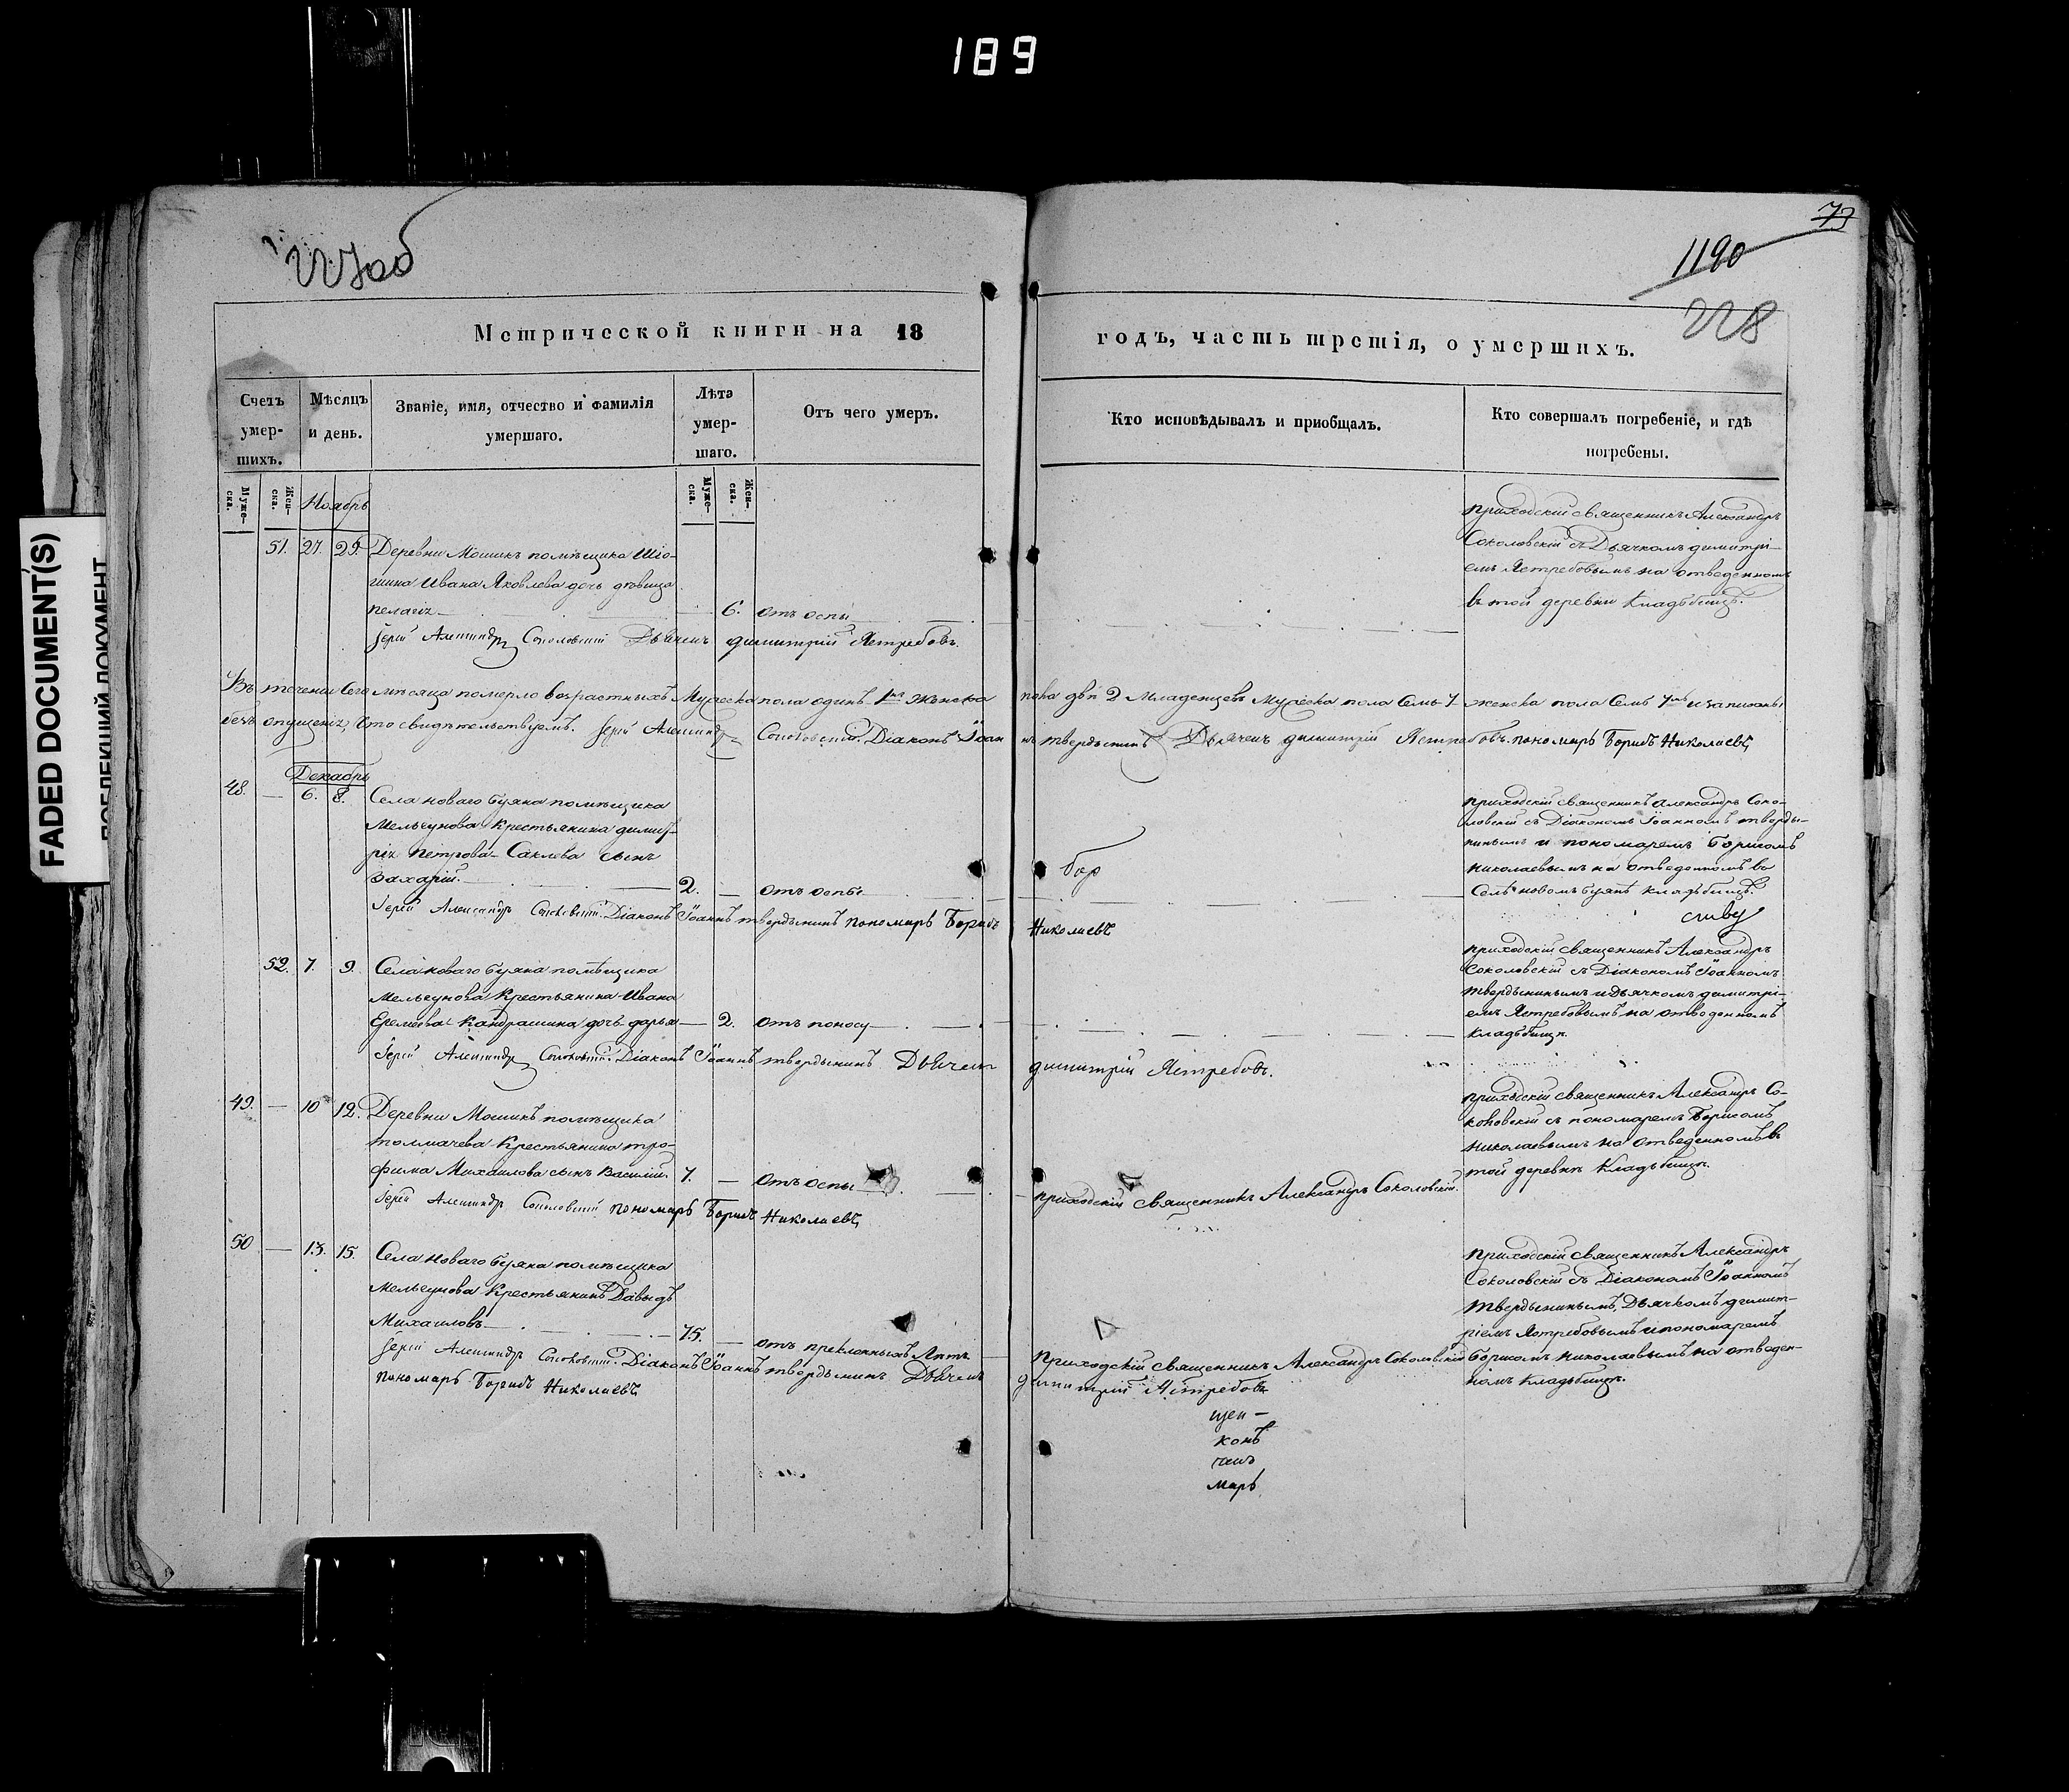 189
FADED DOCUMENT(S)
73
1190
228
Метрической книги на 18 годъ, часть третія, о умершихъ.
Счетъ умер-шихъ.
Мѣсяцъ и день.
Званіе, имя, отчество и фамилія умершаго.
Лѣта умер-шаго.
Отъ чего умеръ.
Кто исповѣдывалъ и приобщалъ.
Кто совершалъ погребеніе, и гдѣ погребены.
Муже-ска.
Жен-ска.
Муже-ска.
Жен-ска.
Ноябрь
51. 27. 29. Деревни Мошикъ помѣщика
Ивана Яковлева дочь дѣвица
пелагіа 6. отъ оспы
приходскій священникъ Александръ
Соколовскій съ Дьячкомъ димитрі-
емъ Ястребовымъ на отведенномъ
въ той деревни Кладбищѣ.
Іерей Александръ Соколовскій Дьячекъ димитрій Ястребовъ.
Въ теченіи Сего мѣсяца померло возрастныхъ Мужеска пола одинъ 1 женска пола двѣ 2 Младенцевъ Мужеска пола Семь 7 женска пола Семь 7 и записаны
безъ опущенія, Сто свидѣтельствуемъ. Іерей Александръ Соколовскій. Діаконъ Іоаннъ твердынинъ Дьячекъ димитрій Ястребовъ. пономарь Борисъ Николаевъ
Декабрь
48. — 6. 8. Села новаго буяна помѣщика
Мельгунова Крестьянина димит-
рія петрова Саклева сынъ
Захарій. 2. — отъ оспы
приходскій священникъ александръ Соко-
ловскій съ Діакономъ Іоанномъ тверды-
нинымъ и пономаремъ Борисомъ
николаевымъ на отведенномъ въ
Селѣ новомъ буянѣ кладбищѣ
Іерей Александръ Соколовскій. Діаконъ Іоаннъ твердынинъ пономарь Борисъ Николаевъ
52. 7. 9. Села новаго буяна помѣщика
Мельгунова Крестьянина Ивана
Еремѣева Кандрашина дочь дарья — 2. отъ поносу
приходскій священникъ Александръ
Соколовскій съ Діакономъ Іоанномъ
твердынинымъ и Дьячкомъ димитрі-
емъ Ястребовымъ на отведенномъ
кладбищѣ.
Іерей Александръ Соколовскій. Діаконъ Іоаннъ твердынинъ Дьячекъ димитрій Ястребовъ.
49. — 10 12. Деревни Мошикъ помѣщика
толмачева Крестьянина тро-
фима Михаилова сынъ Василій. 7. — отъ оспы
приходскій священникъ Александръ Соколовскій.
приходскій священникъ Александръ Со-
коловскій съ пономаремъ Борисомъ
николаевымъ на отведенномъ въ
той деревнѣ Кладбищѣ.
Іерей Александръ Соколовскій пономарь Борисъ Николаевъ
50 — 13. 15. Села новаго буяна помѣщика
Мельгунова Крестьянинъ Давыдъ
Михаиловъ 75. — отъ преклонныхъ лѣтъ
приходскій священникъ Александръ Соколовскій
приходскій священникъ Александръ
Соколовскій съ Діакономъ Іоанномъ
твердынинымъ, Дьячкомъ димит-
ріемъ Ястребовымъ и пономаремъ
Борисомъ николаевымъ на отведен-
номъ кладбищѣ.
Іерей Александръ Соколовскій. Діаконъ Іоаннъ твердынинъ Дьячекъ димитрій Ястребовъ
пономарь Борисъ Николаевъ
щен-
конъ
чекъ
марь